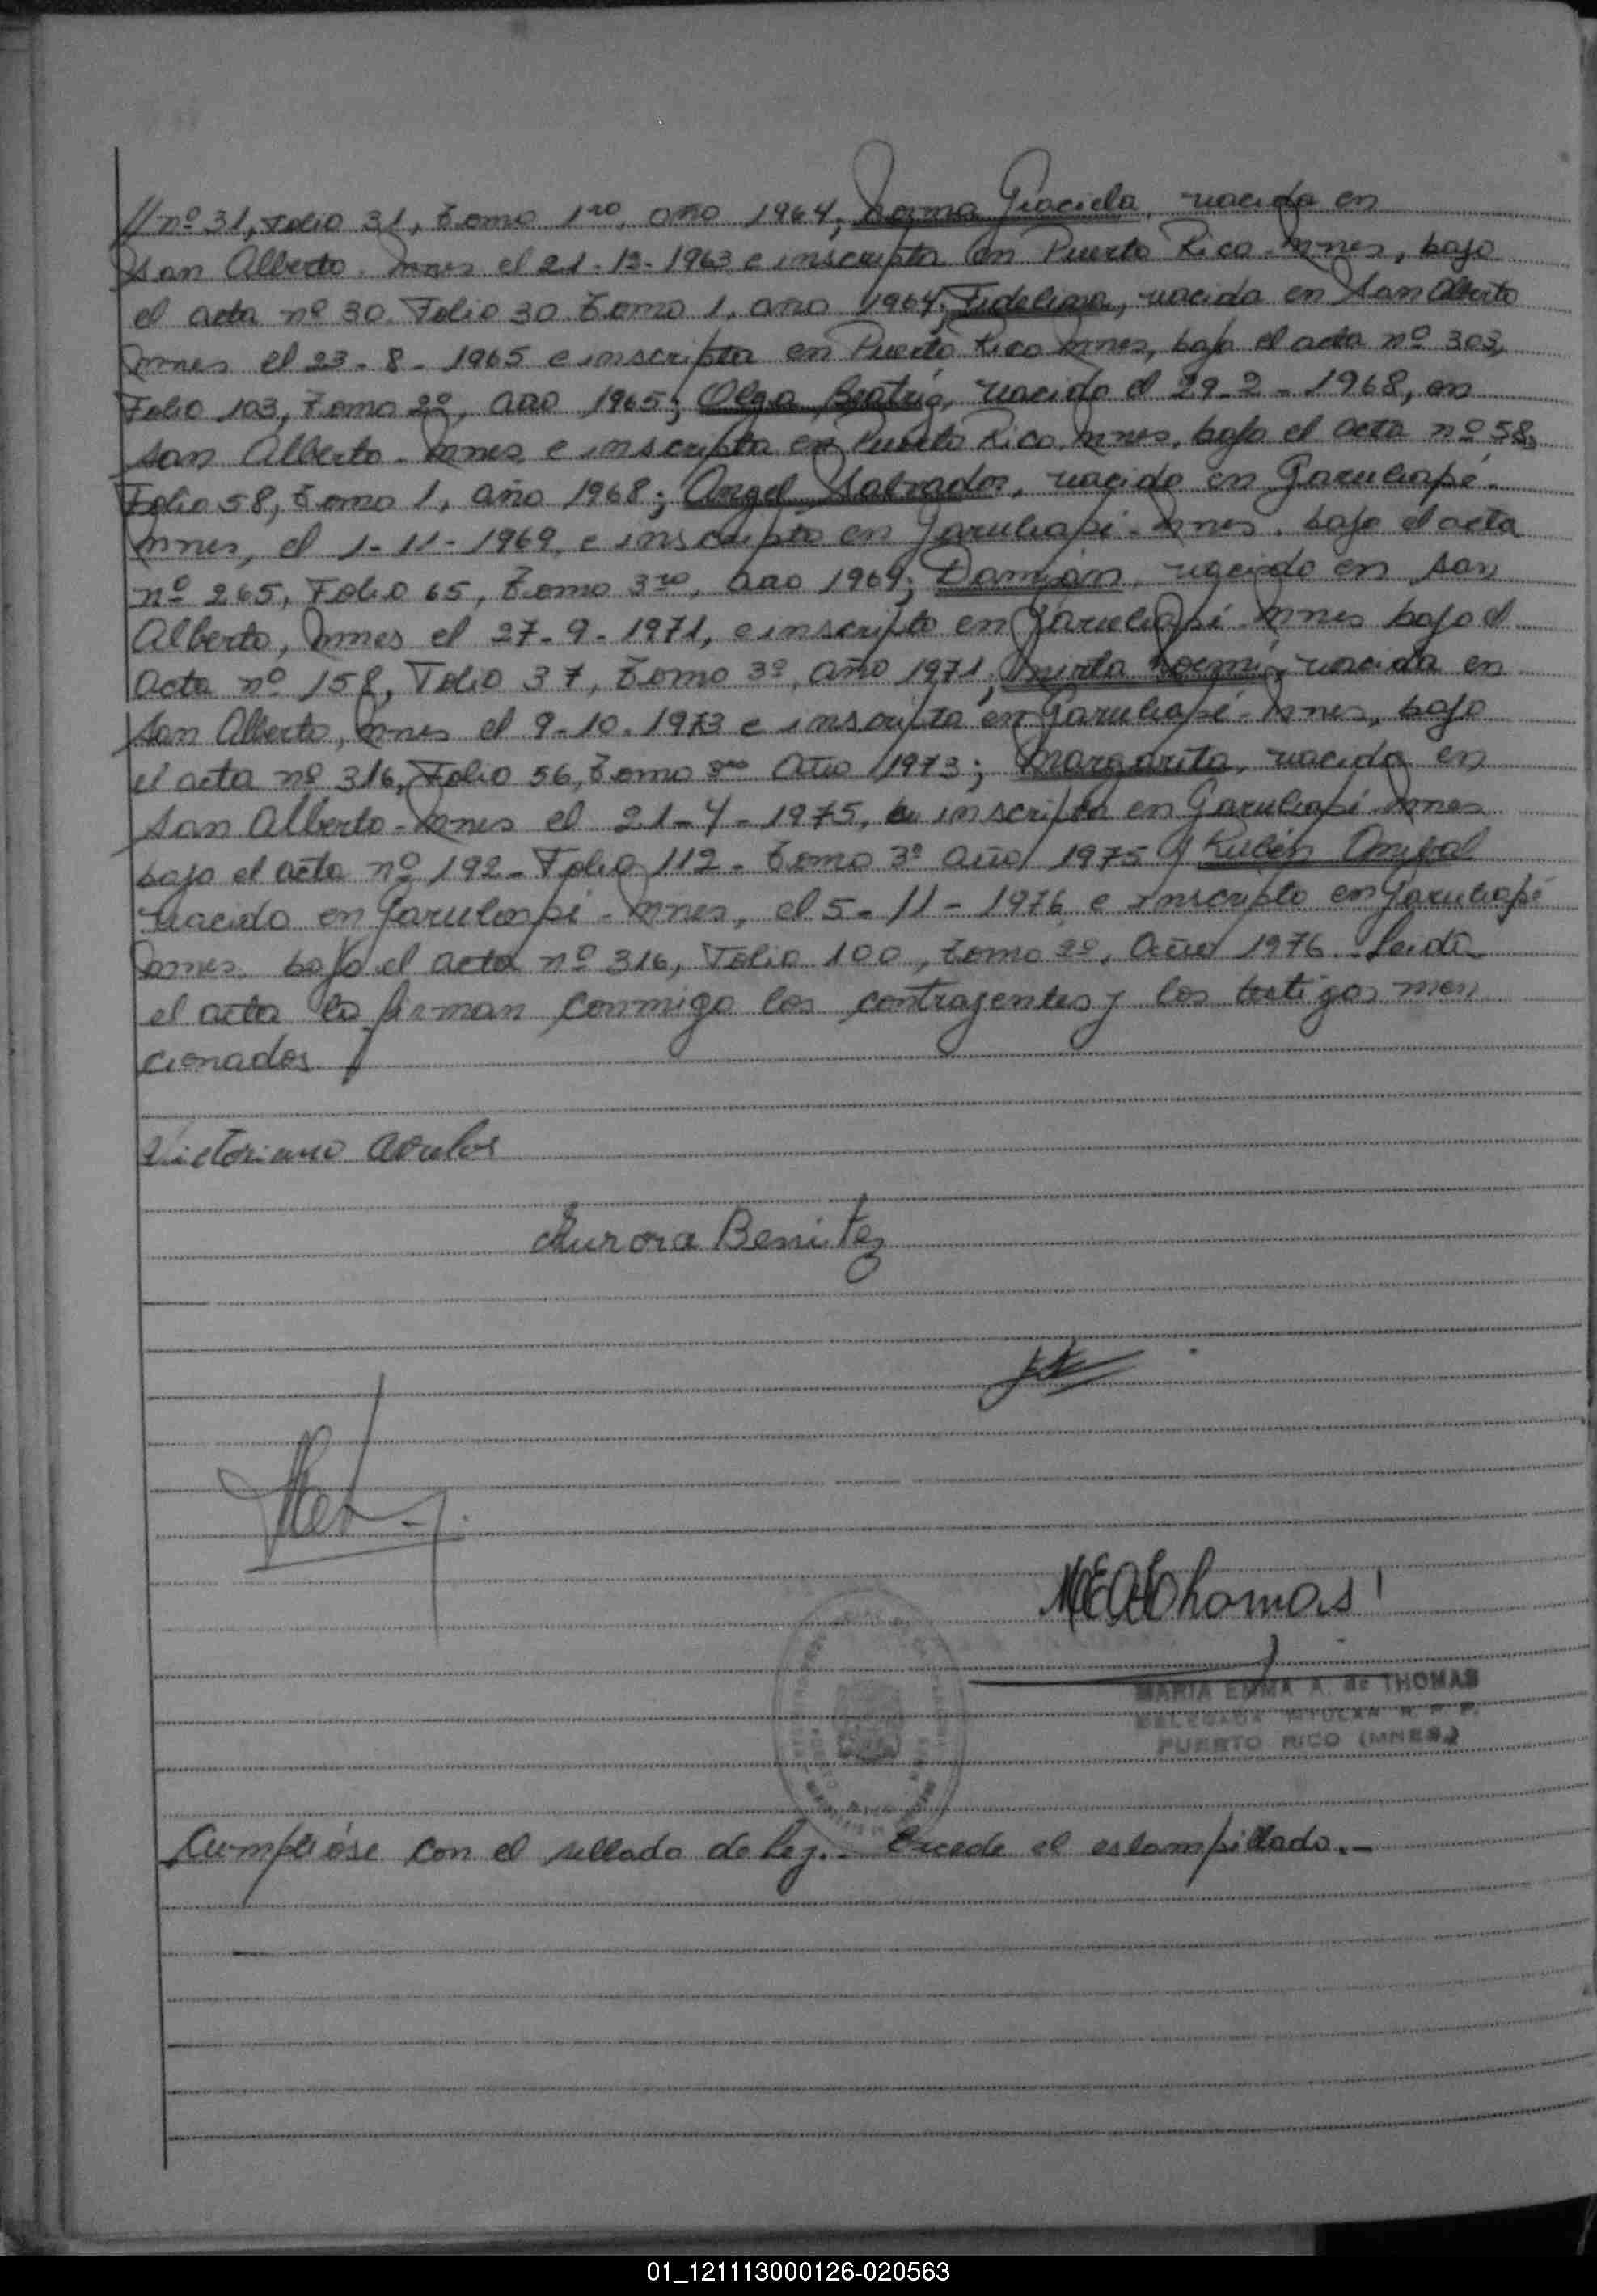 // nº 31, Folio 31, Tomo 1ro, año 1964; Norma Graciela, nacida en
San Alberto. Mnes el 21-12-1963 e inscripta en Puerto Rico. Mnes, bajo
el acta nº 30. Folio 30 Tomo 1, año 1964; Fidelina, nacida en San Alberto
Mnes el 23-8-1965 e inscripta en Puerto Rico Mnes, bajo el acta nº 303,
Folio 103, Tomo 2º, año 1965; Olga Beatriz, nacida el 29-2-1968, en
San Alberto. Mnes e inscripta en Puerto Rico. Mnes, bajo el acta nº 58,
Folio 58, Tomo 1, año 1968; Angel Salvador, nacido en Garuhapé.
Mnes, el 1-11-1969, e inscripto en Garuhapé-Mnes. bajo el acta
nº 265, Folio 65, Tomo 3ro, año 1969; Damián, nacido en San
Alberto, Mnes el 27-9-1971, e inscripto en Garuhapé-Mnes bajo el
acta nº 158, Folio 37, Tomo 3º, año 1971; Mirta Noemí, nacida en
San Alberto, Mnes el 9-10-1973 e inscripta en Garuhapé-Mnes, bajo
el acta nº 316, Folio 56, Tomo 3ro año 1973; Margarita, nacida en
San Alberto-Mnes el 21-4-1975, e inscripta en Garuhapé Mnes
bajo el acta nº 192-Folio 112-Tomo 3º año 1975 y Rubén Anibal
nacido en Garuhapé-Mnes, el 5-11-1976, e inscripto en Garuhapé
Mnes. bajo el acta nº 316, Folio 100, Tomo 2º, año 1976. Leída
el acta la firman conmigo los contrayentes y los testigos men
cionados.
Victoriano Avalos
Aurora Benitez
MEA de Thomas
MARIA EMMA A. de THOMAS
DELEGADA TITULAR R. P. P.
PUERTO RICO (MNES.)
Cumplióse con el sellado de Ley.- Excede el estampillado.-
01_121113000126-020563